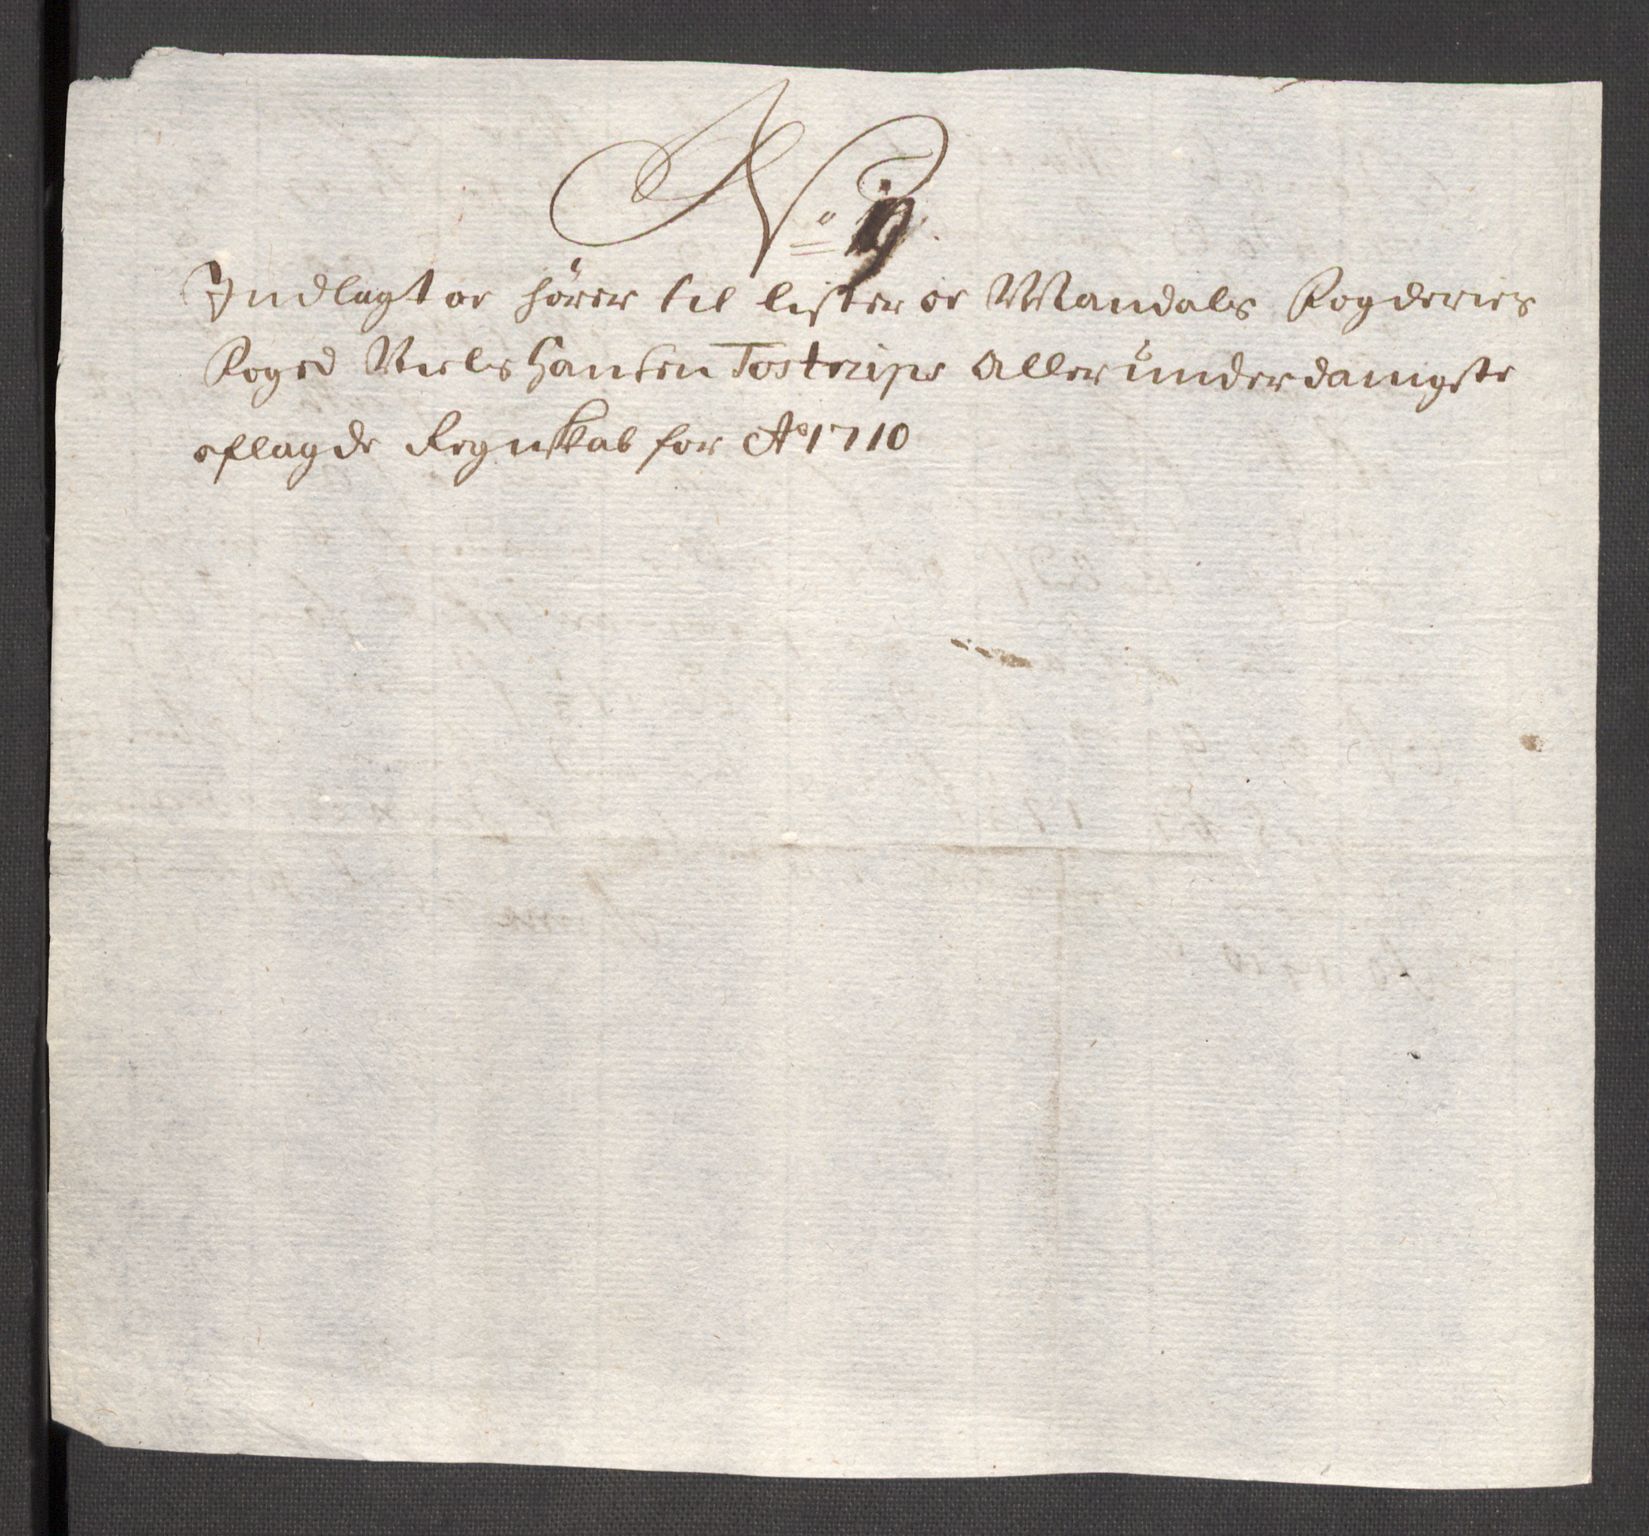 No 19
Indlagt oc hører til lister oc Mandals Fogderies
Foged Niels Hansen Tostrups Allerunderdanigste
aflagde Regnskab for Ao 1710